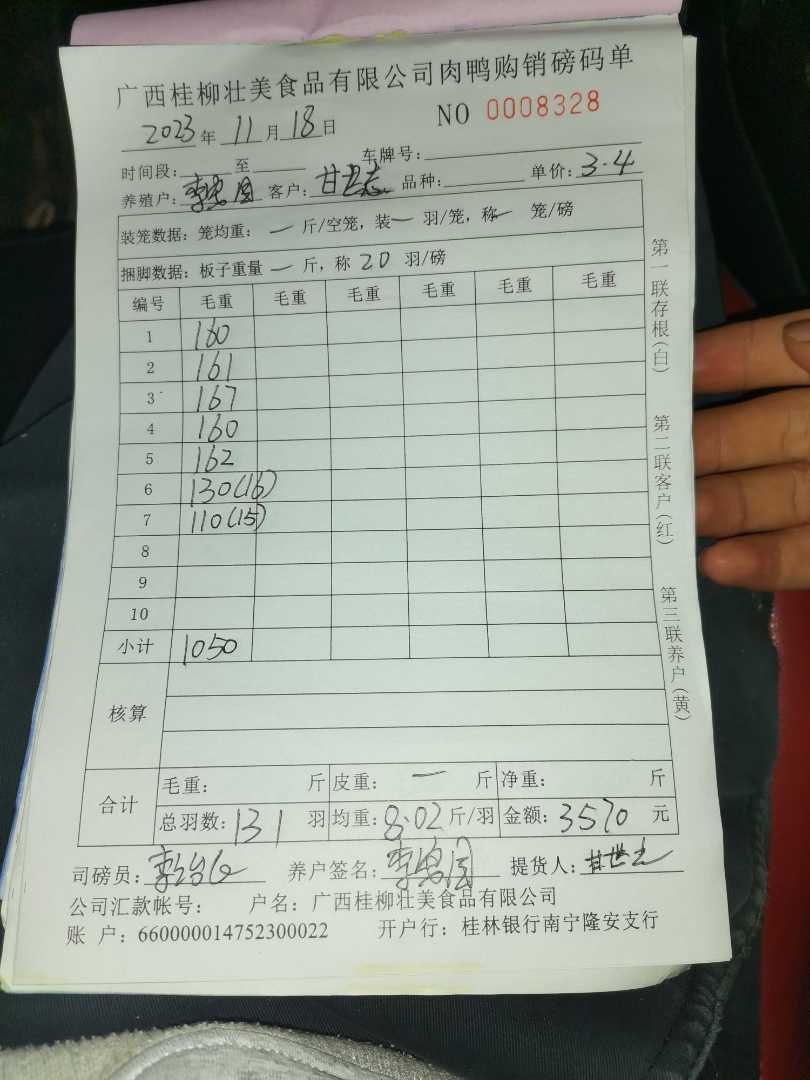 广西桂柳壮美食品有限公司肉鸭购销磅码单
2023年 11月 18日 NO 0008328
时间段: 至 车牌号:
养殖户: 客户: 甘世志 品种: 单价: 3.4
装笼数据: 笼均重: — 斤/空笼, 装 — 羽/笼, 称 — 笼/磅
捆脚数据: 板子重量 — 斤, 称 20 羽/磅
编号 毛重 毛重 毛重 毛重 毛重 毛重
1 160
2 161
3 167
4 160
5 162
6 130(16)
7 110(15)
8
9
10
小计 1050
核算
合计
毛重: 斤 皮重: — 斤 净重: 斤
总羽数: 131 羽 均重: 8.02 斤/羽 金额: 3570 元
司磅员: 养户签名: 提货人:
公司汇款帐号: 户名: 广西桂柳壮美食品有限公司
账 户: 660000014752300022 开户行: 桂林银行南宁隆安支行
第一联存根(白)
第二联客户(红)
第三联养户(黄)